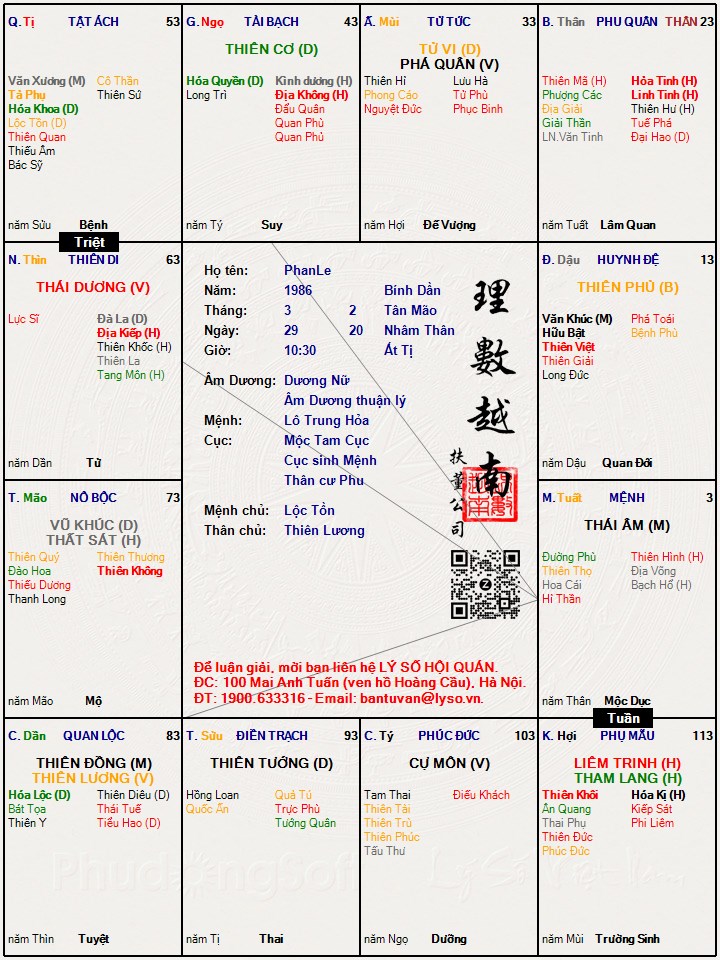 Q. Tị TẬT ÁCH 53
Văn Xương (M) Cô Thần
Tả Phụ Thiên Sứ
Hóa Khoa (D)
Lộc Tồn (D)
Thiên Quan
Thiếu Âm
Bác Sỹ
năm Sửu Bệnh
G. Ngọ TÀI BẠCH 43
THIÊN CƠ (D)
Hóa Quyền (D) Kình dương (H)
Long Trì Địa Không (H)
Đẩu Quân
Quan Phủ
Quan Phù
năm Tý Suy
Ấ. Mùi TỬ TỨC 33
TỬ VI (D)
PHÁ QUÂN (V)
Thiên Hỉ Lưu Hà
Phong Cáo Tử Phù
Nguyệt Đức Phục Binh
năm Hợi Đế Vượng
B. Thân PHU QUÂN THÂN 23
Thiên Mã (H) Hỏa Tinh (H)
Phượng Các Linh Tinh (H)
Địa Giải Thiên Hư (H)
Giải Thần Tuế Phá
LN.Văn Tinh Đại Hao (D)
năm Tuất Lâm Quan
Triệt
N. Thìn THIÊN DI 63
THÁI DƯƠNG (V)
Lực Sĩ Đà La (D)
Địa Kiếp (H)
Thiên Khốc (H)
Thiên La
Tang Môn (H)
năm Dần Tử
Họ tên: PhanLe
Năm: 1986 Bính Dần
Tháng: 3 2 Tân Mão
Ngày: 29 20 Nhâm Thân
Giờ: 10:30 Ất Tị
Âm Dương: Dương Nữ
Âm Dương thuận lý
Mệnh: Lô Trung Hỏa
Cục: Mộc Tam Cục
Cục sinh Mệnh
Thân cư Phu
Mệnh chủ: Lộc Tồn
Thân chủ: Thiên Lương
理數越南
扶董公司
Để luận giải, mời bạn liên hệ LÝ SỐ HỘI QUÁN.
ĐC: 100 Mai Anh Tuấn (ven hồ Hoàng Cầu), Hà Nội.
ĐT: 1900.633316 - Email: bantuvan@lyso.vn.
Đ. Dậu HUYNH ĐỆ 13
THIÊN PHỦ (B)
Văn Khúc (M) Phá Toái
Hữu Bật Bệnh Phù
Thiên Việt
Thiên Giải
Long Đức
năm Dậu Quan Đới
T. Mão NÔ BỘC 73
VŨ KHÚC (D)
THẤT SÁT (H)
Thiên Quý Thiên Thương
Đào Hoa Thiên Không
Thiếu Dương
Thanh Long
năm Mão Mộ
M. Tuất MỆNH 3
THÁI ÂM (M)
Đường Phù Thiên Hình (H)
Thiên Thọ Địa Võng
Hoa Cái Bạch Hổ (H)
Hỉ Thần
năm Thân Mộc Dục
Tuần
C. Dần QUAN LỘC 83
THIÊN ĐỒNG (M)
THIÊN LƯƠNG (V)
Hóa Lộc (D) Thiên Diêu (D)
Bát Tọa Thái Tuế
Thiên Y Tiểu Hao (D)
năm Thìn Tuyệt
T. Sửu ĐIỀN TRẠCH 93
THIÊN TƯỚNG (D)
Hồng Loan Quả Tú
Quốc Ấn Trực Phù
Tướng Quân
năm Tị Thai
C. Tý PHÚC ĐỨC 103
CỰ MÔN (V)
Tam Thai Điếu Khách
Thiên Tài
Thiên Trù
Thiên Phúc
Tấu Thư
năm Ngọ Dưỡng
K. Hợi PHỤ MẪU 113
LIÊM TRINH (H)
THAM LANG (H)
Thiên Khôi Hóa Kị (H)
Ân Quang Kiếp Sát
Thai Phụ Phi Liêm
Thiên Đức
Phúc Đức
năm Mùi Trường Sinh